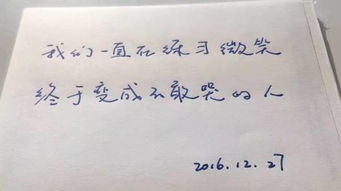 我们一直在练习微笑
终于变成不敢哭的人
2016.12.27